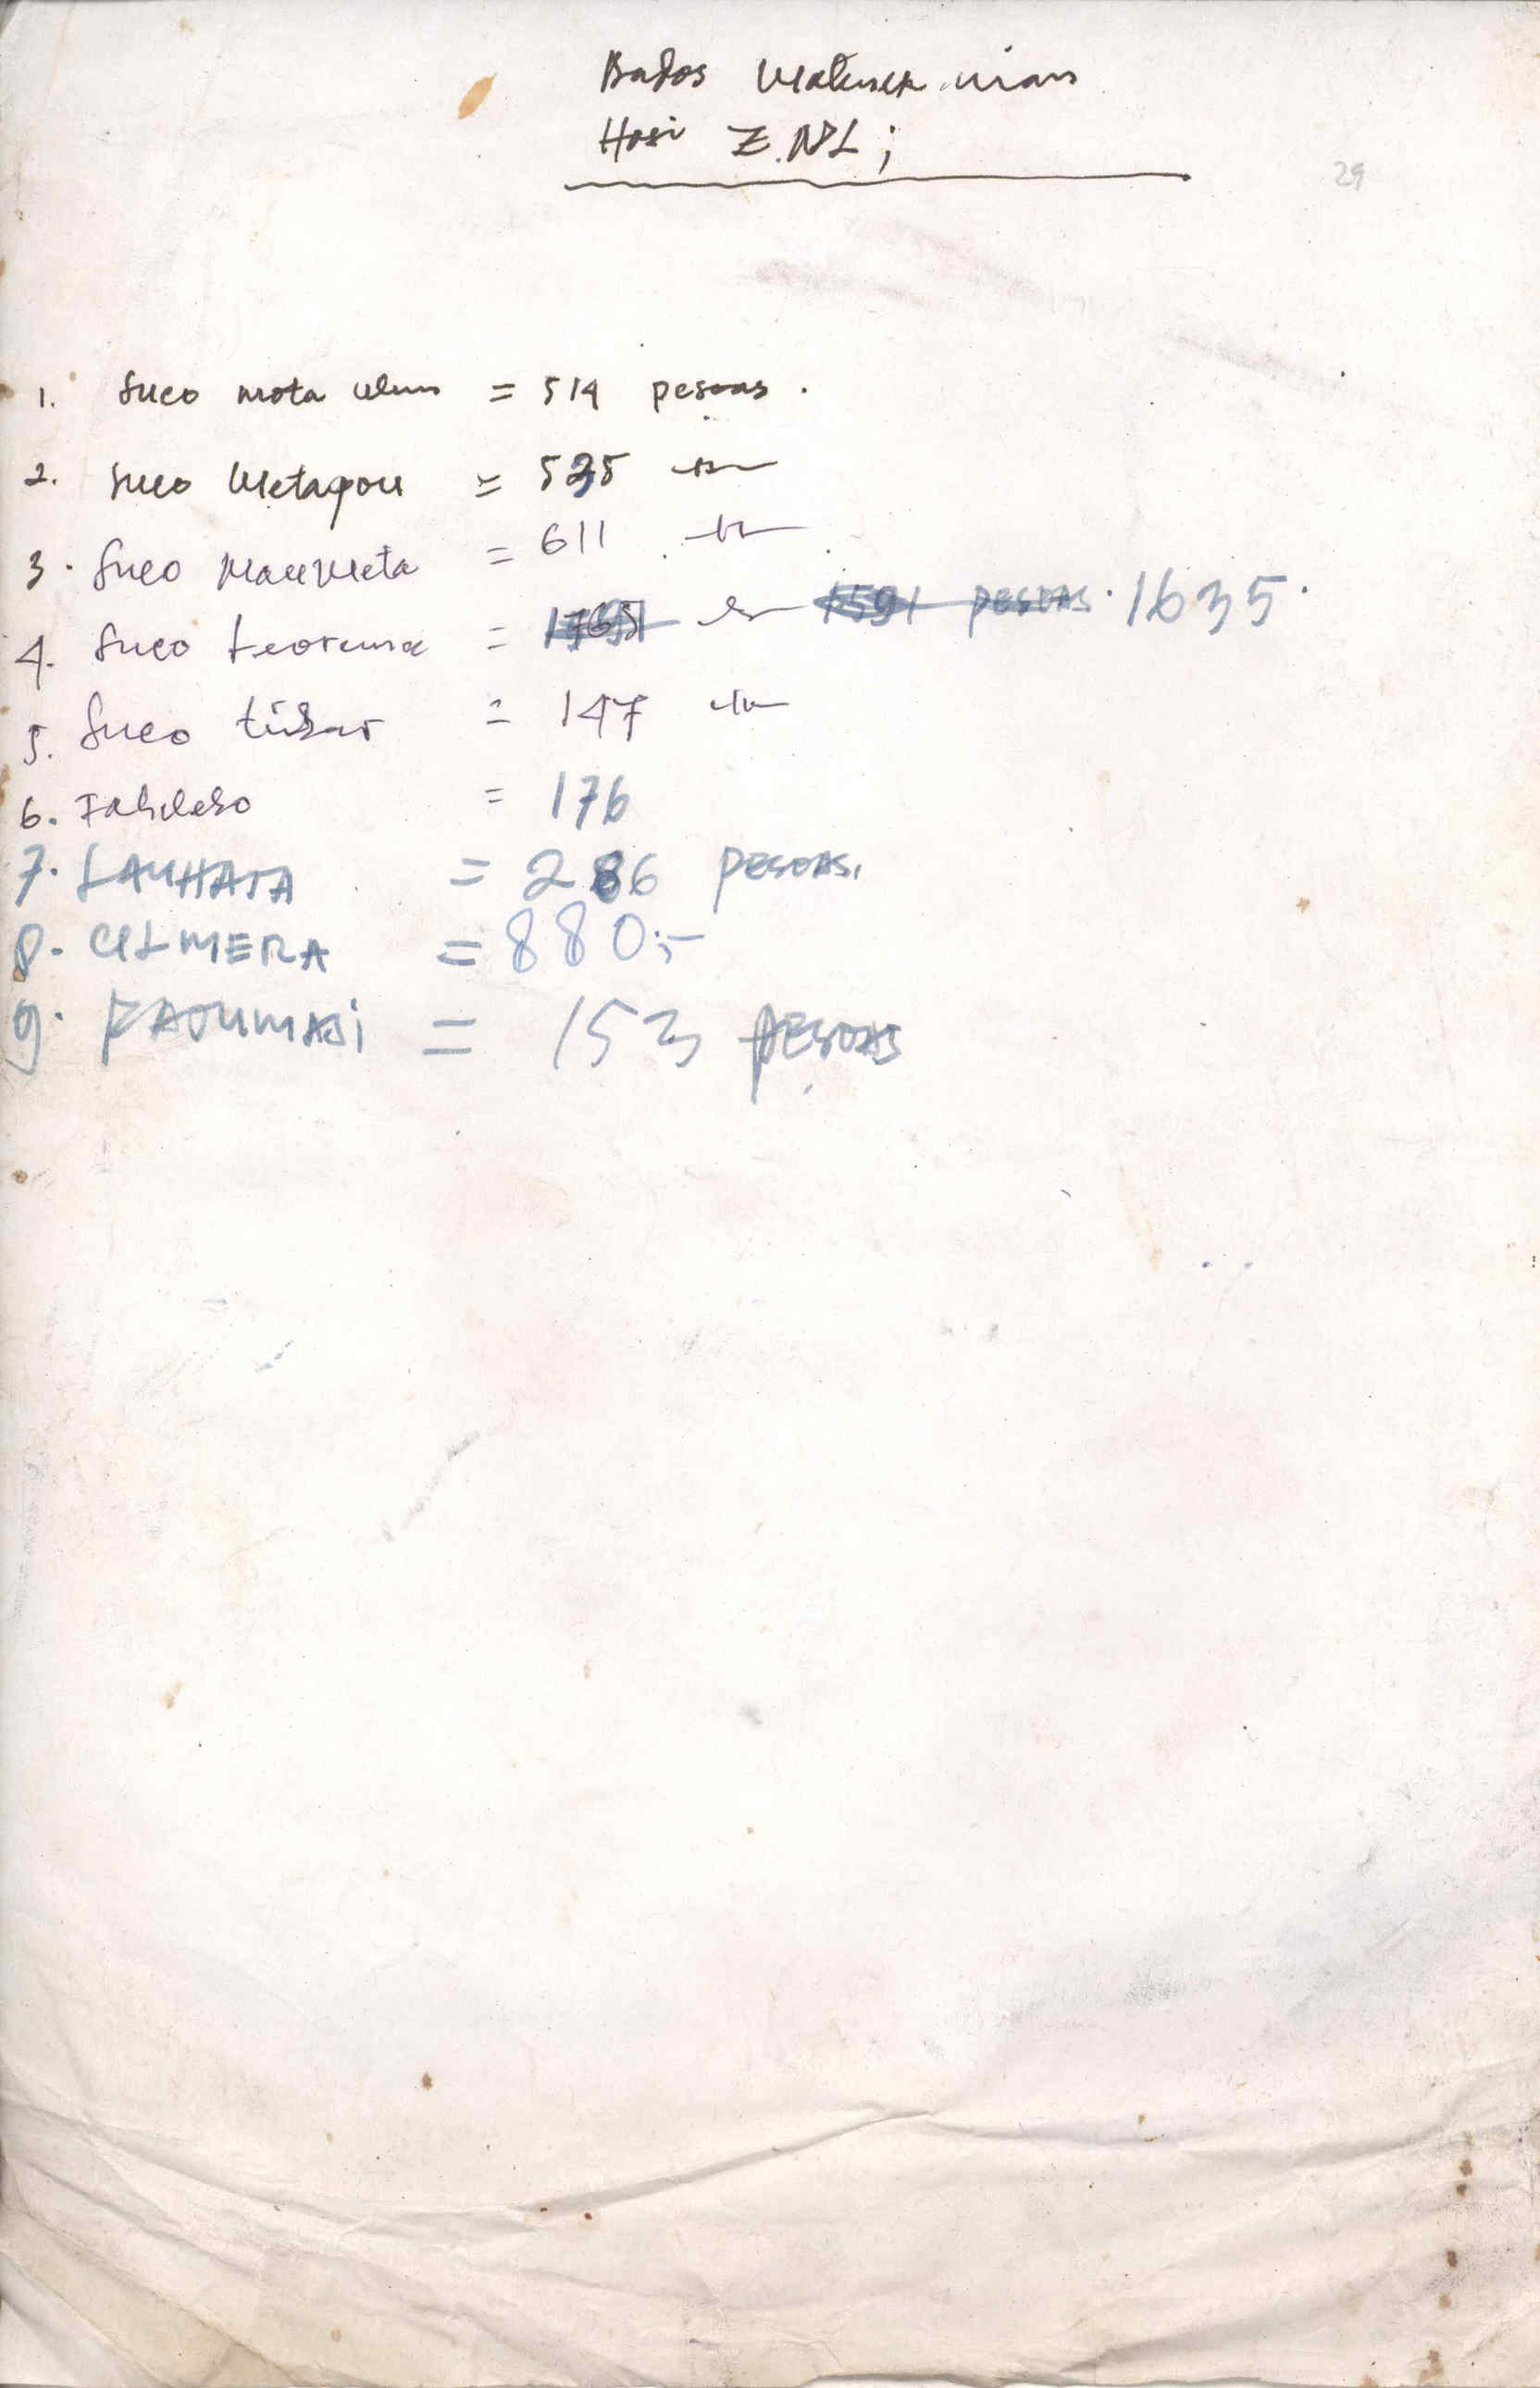 Dados
Hosi Z.NL;
29
1. Suco mota ulun = 514 pesoas.
2. Suco Metagou = 535
3. Suco Maumeta = 611
4. Suco Leorema = 1591 pesoas. 1635.
5. Suco tibar = 147
6. Fahilebo = 176
7. LAUHATA = 286 PESOAS.
8. ULMERA = 880;-
9. FATUMASI = 153 PESOAS